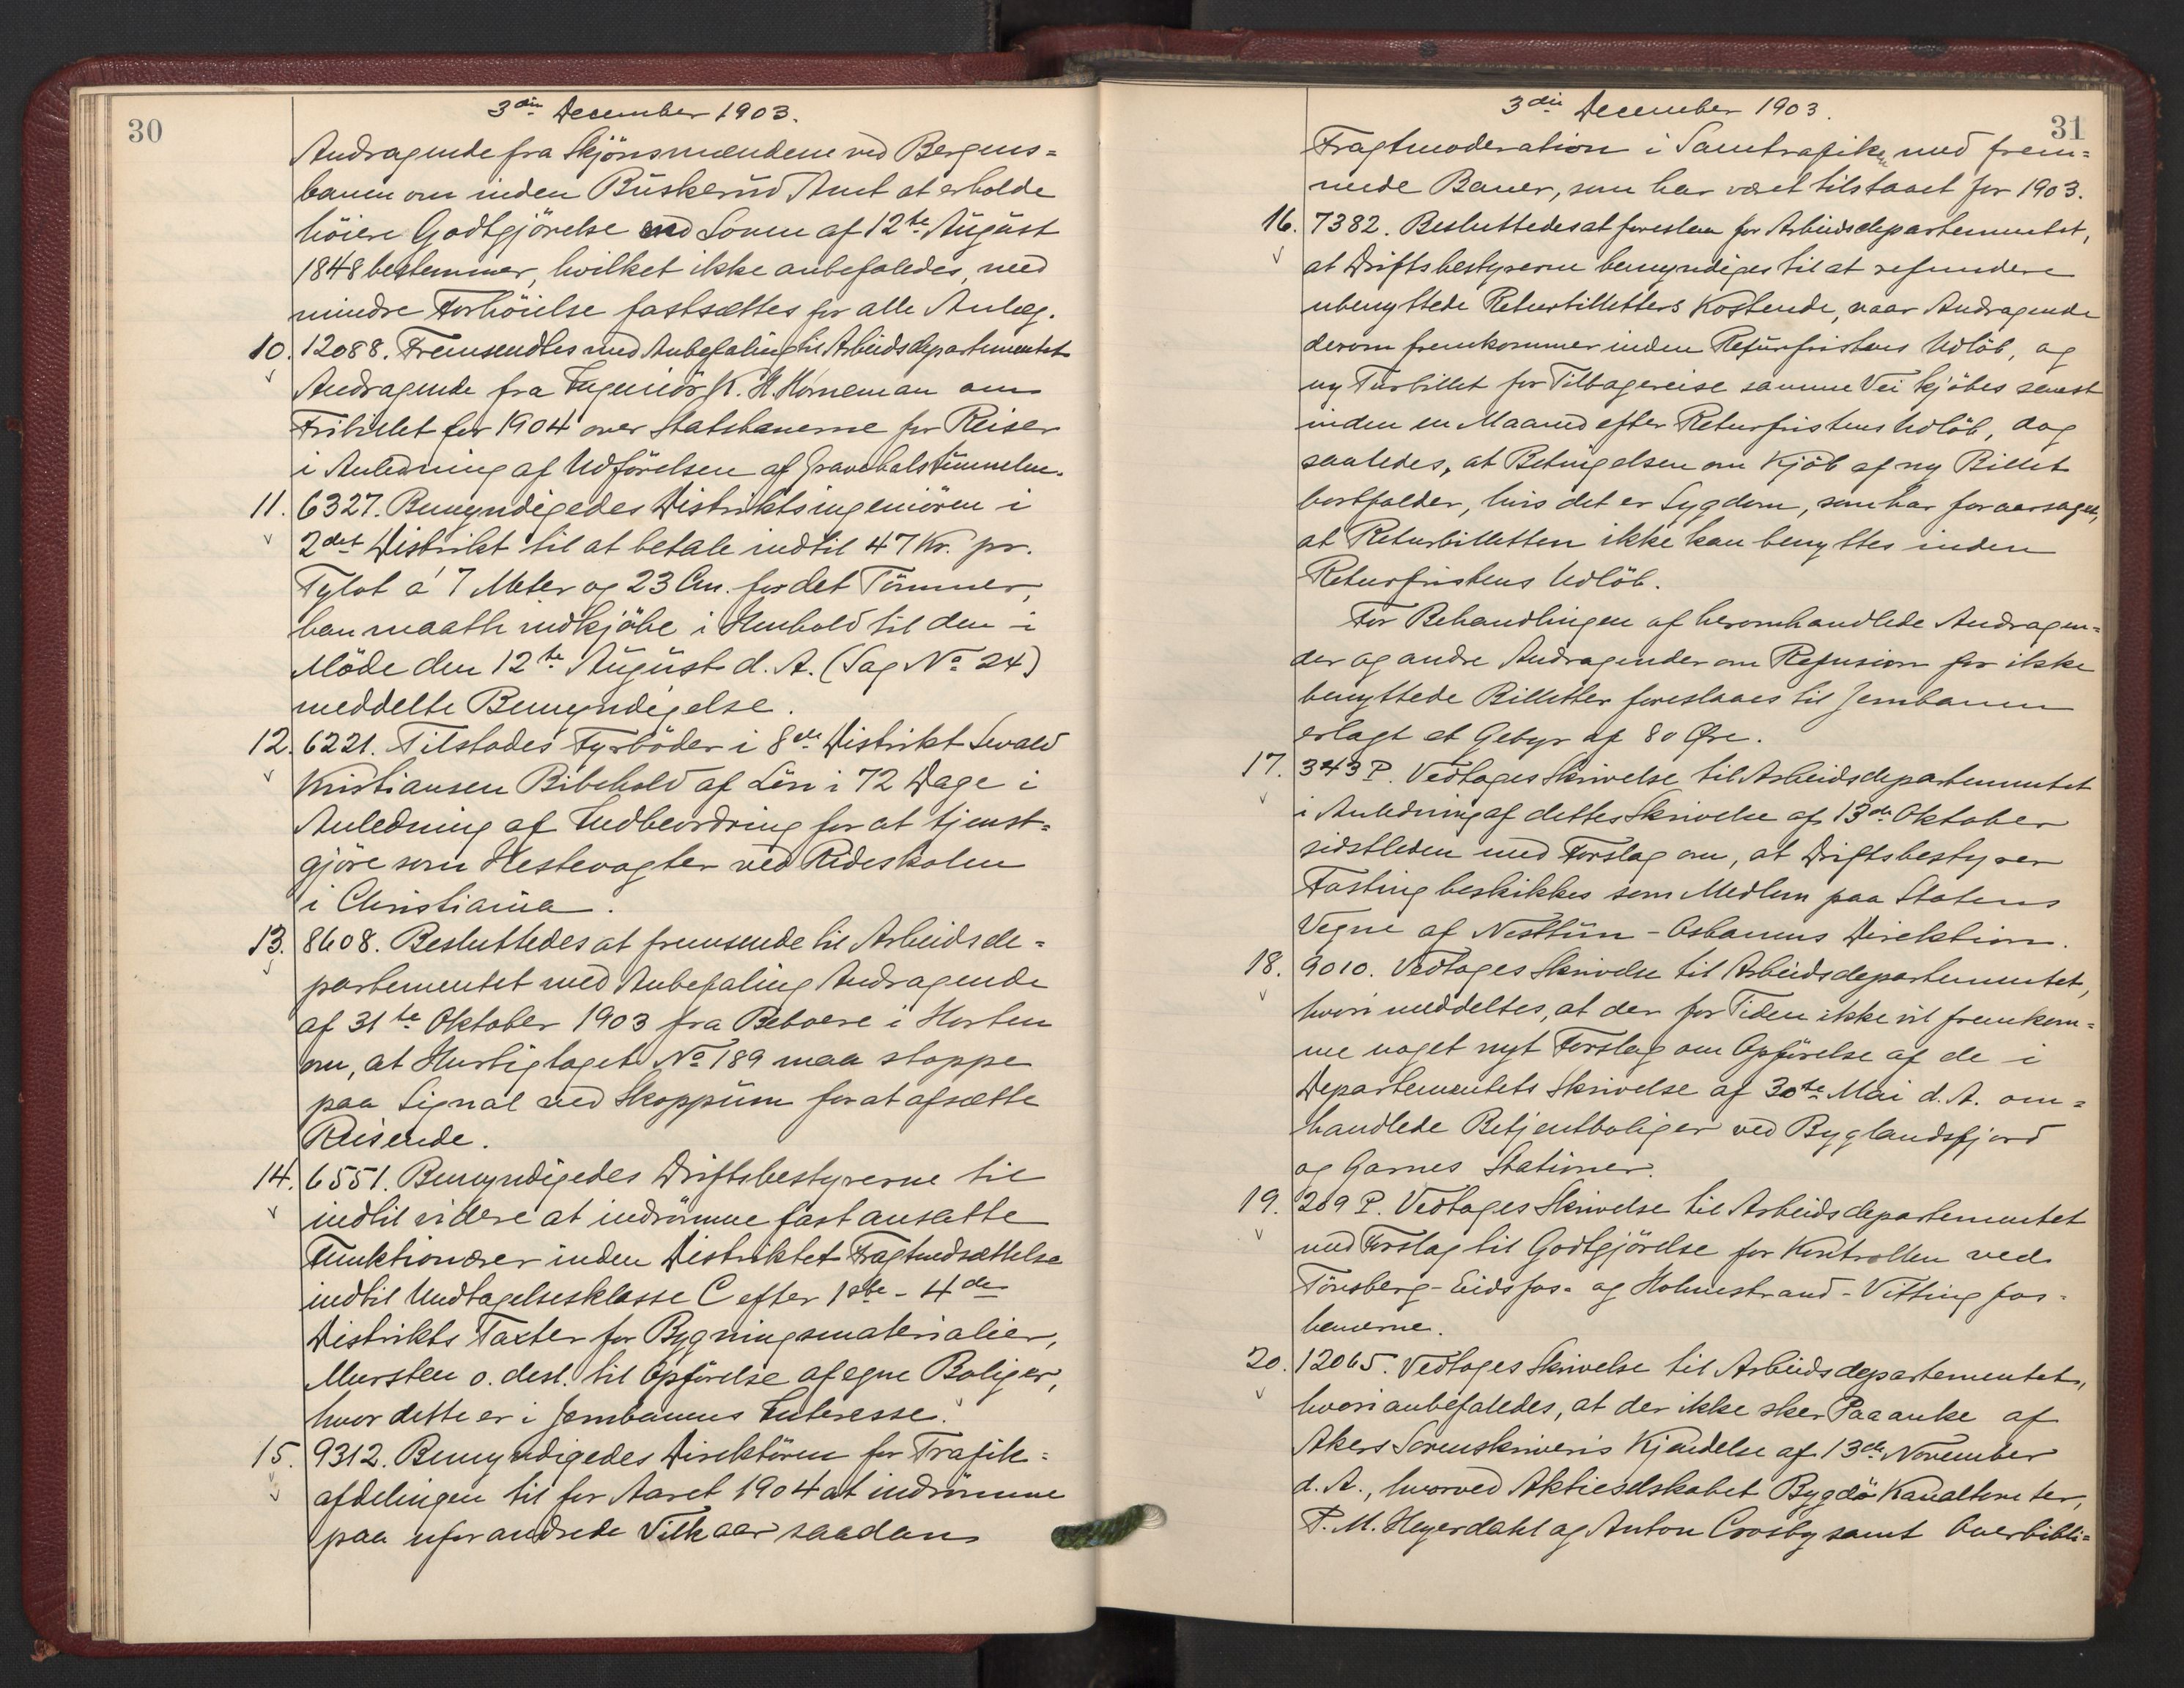 30
3die December 1903.
Andragende fra Skjönsmændene ved Bergens=
banen om inden Buskerud Amt at erholde
höiere Godtgjörelse end Loven af 12te August
1848 bestemmer, hvilket ikke anbefaledes, med
mindre Forhöielse fastsættes for alle Anlæg.
10. 12088. Fremsendtes med Anbefaling til Arbeidsdepartementet
Andragende fra Ingeniör K. H. Horneman om
Fribillet for 1904 over Statsbanerne for Reiser
i Anledning af Udförelsen af Gravehalstunnelen.
11. 6327. Bemyndigedes Distriktsingeniören i
2det Distrikt til at betale indtil 47 Kr. pr.
Tylvt á 7 Meter og 23 Cm. for det Tömmer,
han maatte indkjöbe i Henhold til den i
Möde den 12te August d. A. (Sag No 24)
meddelte Bemyndigelse.
12. 6221. Tilstodes Fyrböder i 8de Distrikt Sevald
Kristiansen Bibehold af Lön i 72 Dage i
Anledning af Indbeordring for at tjenst=
gjöre som Hestevogter ved Rideskolen
i Christiania.
13. 8608. Besluttedes at fremsende til Arbeidsde=
partementet med Anbefaling Andragende
af 31te Oktober 1903 fra Beboere i Horten
om, at Hurtigtoget No 189 maa stoppe
paa Signal ved Skoppum for at afsætte
Reisende.
14. 6551. Bemyndigedes Driftsbestyrerne til
indtil videre at indrömme fast ansatte
Funktionærer inden Distriktet Fragtnedsættelse
indtil Undtagelsesklasse C efter 1ste - 4de
Distrikts Taxter for Bygningsmaterialier,
Mursten o. desl. til Opförelse af egne Boliger,
hvor dette er i Jernbanens Interesse.
15. 9312. Bemyndigedes Direktören for Trafik=
afdelingen til for Aaret 1904 at indrömme
paa uforandrede Vilkaar saadan
31
3die December 1903.
Fragtmoderation i Samtrafiken med frem=
mede Baner, som har været tilstaaet for 1903.
16. 7382. Besluttedes at foreslaa for Arbeidsdepartementet,
at Driftsbestyrerne bemyndiges til at refundere
ubenyttede Returbilletters Kostende, naar Andragende
derom fremkommer inden Returfristens Udlöb, og
ny Turbillet for Tilbagereise samme Vei kjöbes senest
inden en Maaned efter Returfristens Udlöb, dog
saaledes, at Betingelsen om Kjöb af ny Billet
bortfalder, hvis det er Sygdom, som har foraarsaget,
at Returbilletten ikke kan benyttes inden
Returfristens Udlöb.
For Behandlingen af heromhandlede Andragen=
der og andre Andragender om Refusion for ikke
benyttede Billetter foreslaaes til Jernbanen
erlagt et Gebyr af 80 Øre.
17. 343 P. Vedtoges Skrivelse til Arbeidsdepartementet
i Anledning af dettes Skrivelse af 13de Oktober
sidstleden med Forslag om, at Driftsbestyrer
Fasting beskikkes som Medlem paa Statens
Vegne af Nesttun - Osbanens Direktion.
18. 9010. Vedtoges Skrivelse til Arbeidsdepartementet,
hvori meddeltes, at der for Tiden ikke vil fremkom=
me noget nyt Forslag om Opförelse af de i
Departementets Skrivelse af 30te Mai d. A. om=
handlede Betjentboliger ved Byglandsfjord
og Garnes Stationer.
19. 209 P. Vedtoges Skrivelse til Arbeidsdepartementet
med Forslag til Godtgjörelse for Kontrollen ved
Tönsberg - Eidsfos- og Holmestrand - Vittingfos-
banerne.
20. 12065. Vedtoges Skrivelse til Arbeidsdepartementet,
hvori anbefaledes, at der ikke sker Paaanke af
Akers Sorenskriveris Kjendelse af 13de November
d. A., hvorved Aktieselskabet Bygdö Kanaltomter,
P. M. Heyerdahl og Anton Crosby samt Overbibli=